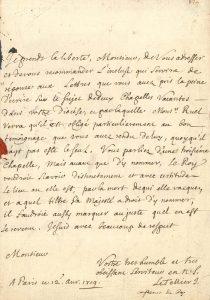 Je prends la liberté, Monsieur, de vous adresser
et de vous recommander l'incluse qui servira de
réponse aux Lettres que vous avez pris la peine
d'ecrire sur le sujet de deux Chapelles vacantes
dans votre Diocese, et par laquelle Mons.
verra qu'il est obligé particulierement au bon
témoignage que vous avez rendu de luy, quoyqu'il
n'ait pas esté le seul. Vous parliez d'une troisième
Chapelle. Mais avant que d'y nommer, le Roy
voudroit sçavoir distinctement et avec certitude
le lieu où elle est, par la mort de qui elle vaque,
et à quel titre Sa Majesté a droit d'y nommer,
il faudroit aussi marquer au juste quel en est
le revenu. Je suis avec beaucoup de respect
Monsieur
Votre tres humble et tres
obeissant serviteur en N.S.
A Paris ce 12 avr. 1713.
Le Tellier J.